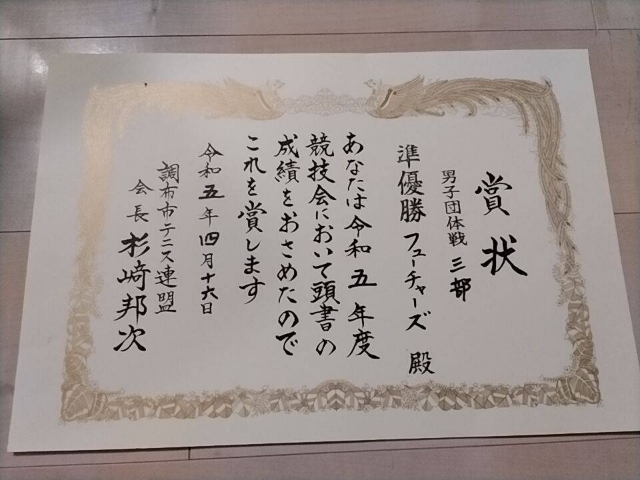 賞状
男子団体戦 三部
準優勝 フューチャーズ 殿
あなたは令和五年度
競技会において頭書の
成績をおさめたので
これを賞します
令和五年四月十六日
調布市テニス連盟
会長 杉崎邦次